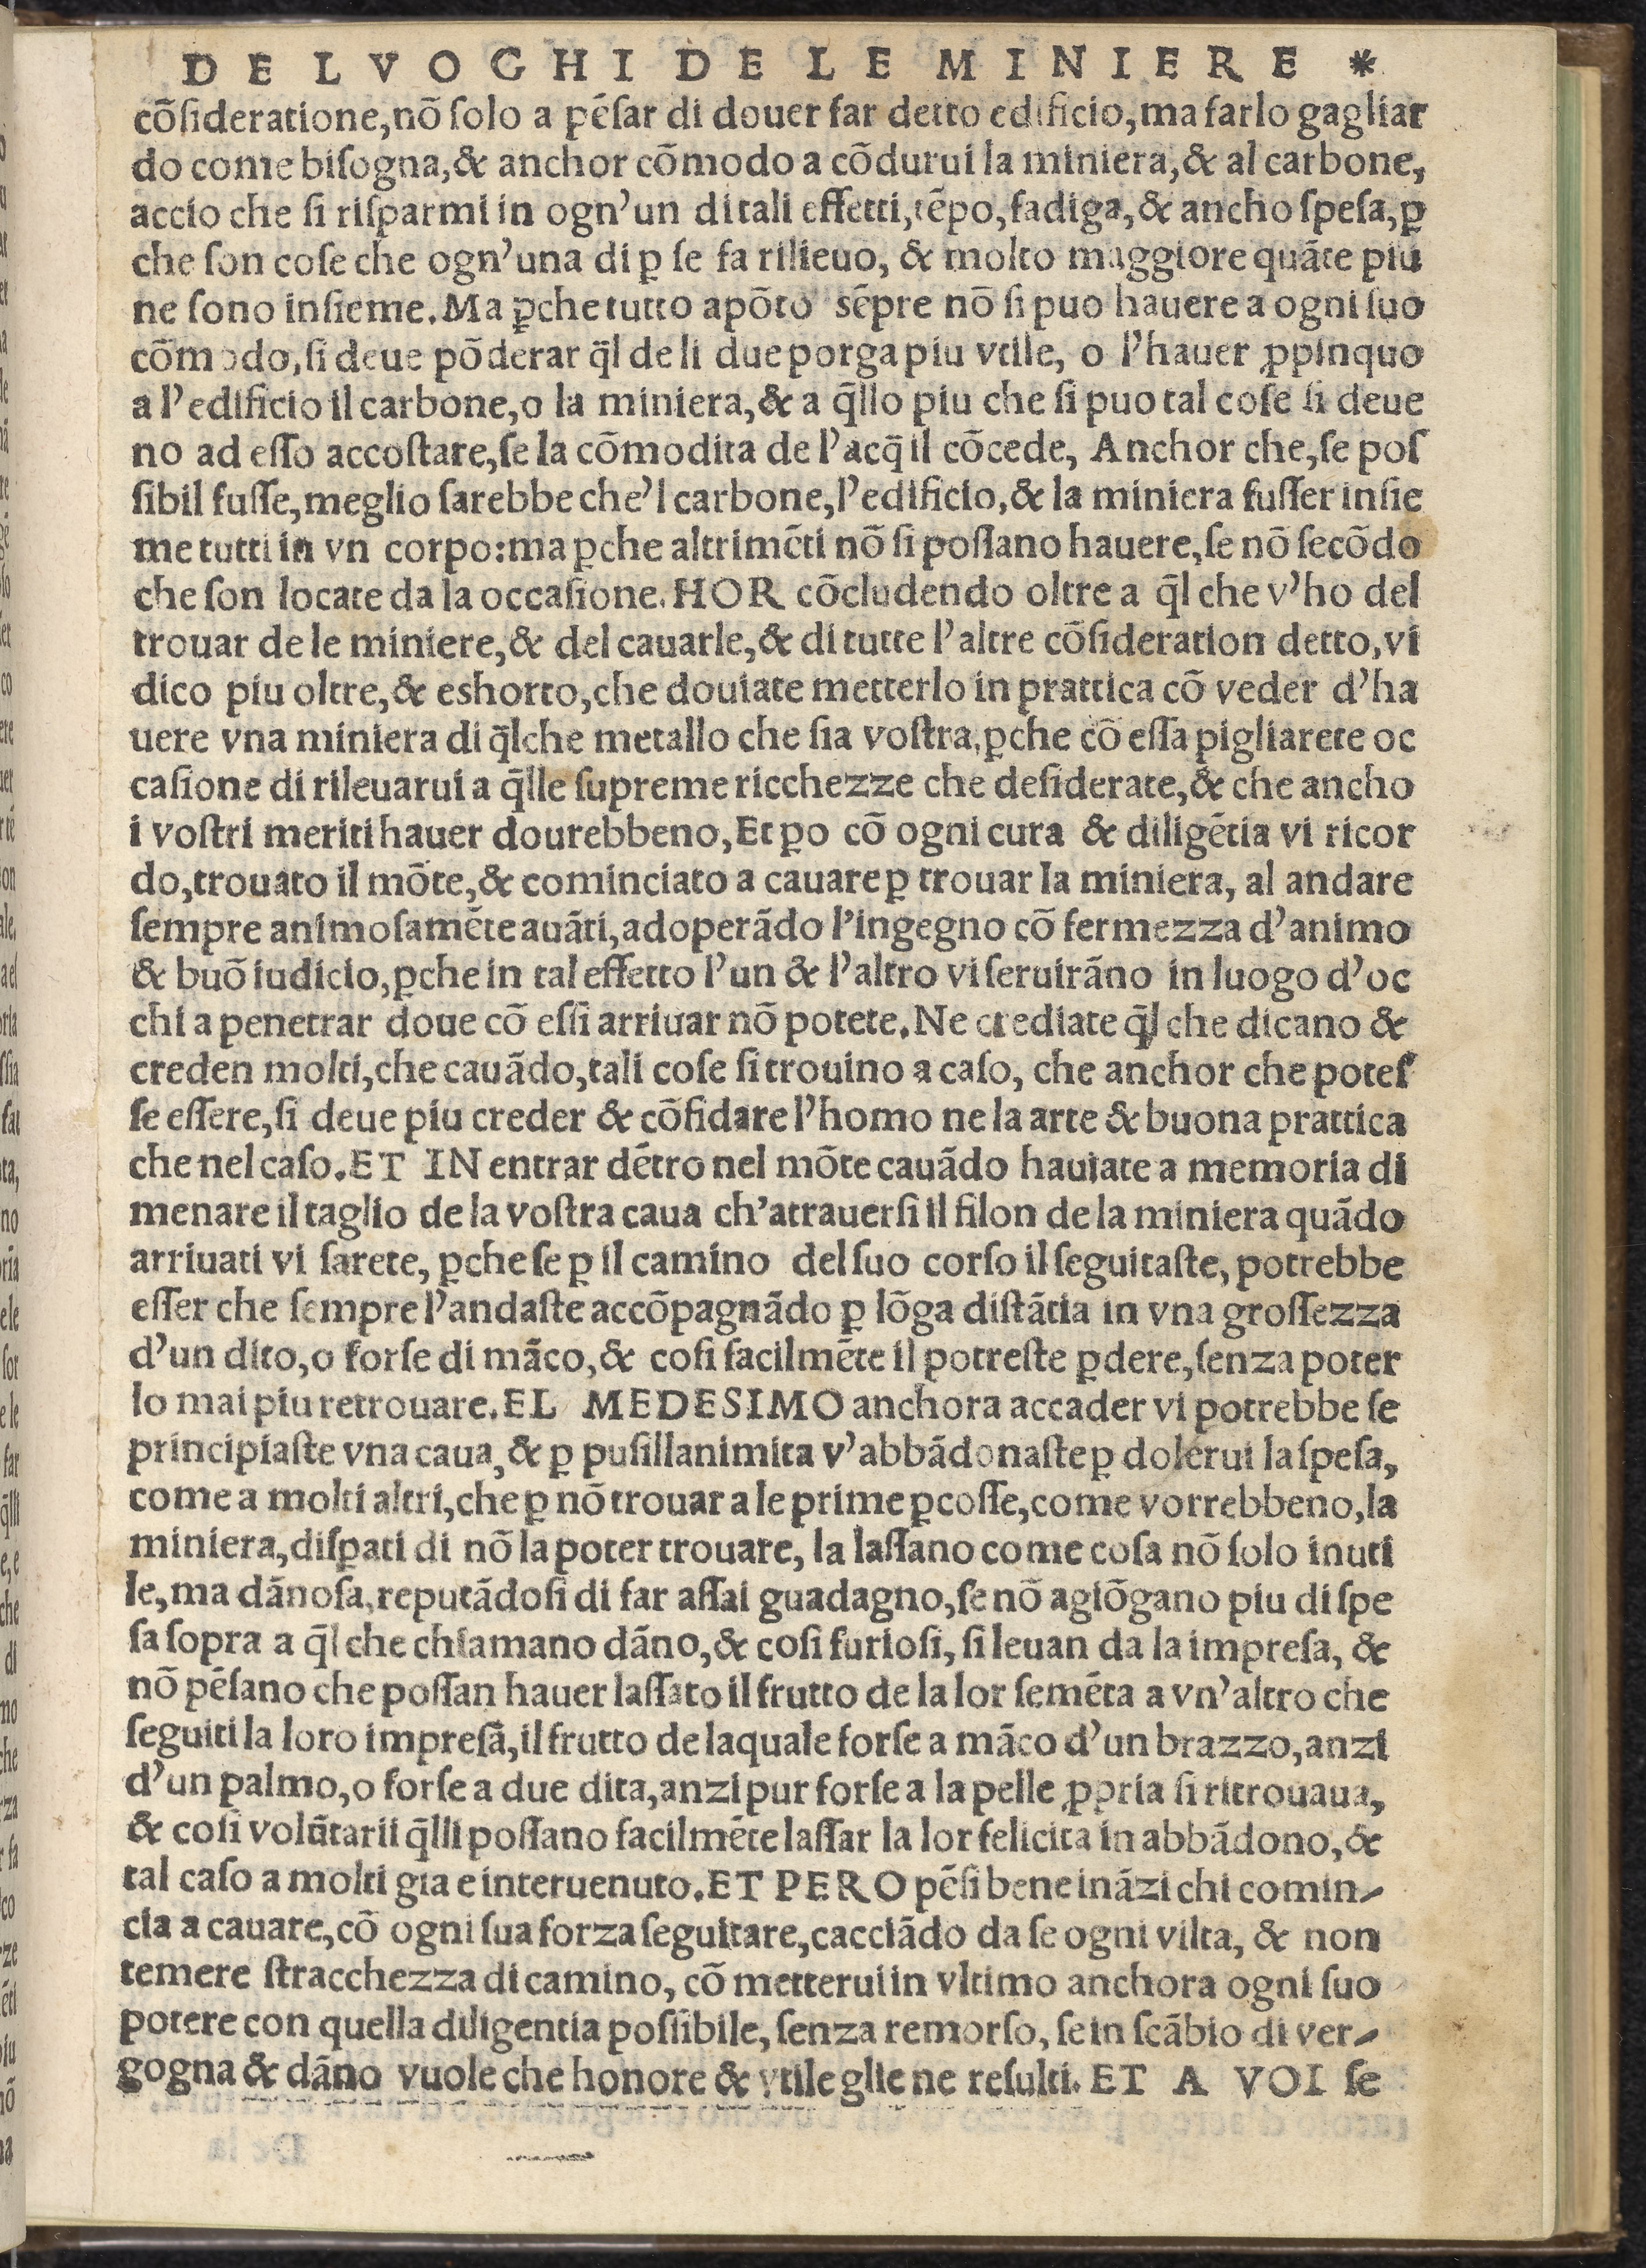 DE LVOGHI DE LE MINIERE *
cōſideratione,nō ſolo a pēſar di douer far detto edificio,ma farlo gagliar
do come biſogna,& anchor cōmodo a cōdurui la miniera,& al carbone,
accio che ſi riſparmi in ogn'un di tali effetti,tēpo,fadiga,& ancho ſpeſa,ꝑ
che ſon coſe che ogn'una di ꝑ ſe fa rilieuo, & molto maggiore quāte piu
ne ſono inſieme.Ma ꝑche tutto apōto sēpre nō ſi puo hauere a ogni ſuo
cōmodo,ſi deue pōderar q̄l de li due porga piu vtile, o l'hauer ꝓpinquo
a l'edificio il carbone,o la miniera,& a q̄llo piu che ſi puo tal coſe ſi deue
no ad eſſo accoſtare,ſe la cōmodita de l'acq̄ il cōcede, Anchor che,ſe poſ
ſibil fuſſe,meglio ſarebbe che'l carbone,l'edificio,& la miniera fuſſer inſie
me tutti in vn corpo:ma ꝑche altrimēti nō ſi poſſano hauere,ſe nō ſecōdo
che ſon locate da la occaſione.HOR cōcludendo oltre a q̄l che v'ho del
trouar de le miniere,& del cauarle,& di tutte l'altre cōſideration detto,vi
dico piu oltre,& eshorto,che douiate metterlo in prattica cō veder d'ha
uere vna miniera di q̄lche metallo che ſia voſtra,ꝑche cō eſſa pigliarete oc
caſione di rileuarui a q̄lle ſupreme ricchezze che deſiderate,& che ancho
i voſtri meriti hauer dourebbeno,Et ꝑo cō ogni cura & diligētia vi ricor
do,trouato il mōte,& cominciato a cauare ꝑ trouar la miniera, al andare
ſempre animoſamēte auāti,adoperādo l'ingegno cō fermezza d'animo
& buō iudicio,ꝑche in tal effetto l'un & l'altro vi ſeruirāno in luogo d'oc
chi a penetrar doue cō eſſi arriuar nō potete.Ne crediate q̄l che dicano &
creden molti,che cauādo,tali coſe ſi trouino a caſo, che anchor che poteſ
ſe eſſere,ſi deue piu creder & cōfidare l'homo ne la arte & buona prattica
che nel caſo.ET IN entrar dētro nel mōte cauādo hauiate a memoria di
menare il taglio de la voſtra caua ch'atrauerſi il filon de la miniera quādo
arriuati vi ſarete, ꝑche ſe ꝑ il camino del ſuo corſo il ſeguitaſte, potrebbe
eſſer che ſempre l'andaſte accōpagnādo ꝑ lōga diſtātia in vna groſſezza
d'un dito,o forſe di māco,& coſi facilmēte il potreſte ꝑdere,ſenza poter
lo mai piu retrouare.EL MEDESIMO anchora accader vi potrebbe ſe
principiaſte vna caua,& ꝑ puſillanimita v'abbādonaſte ꝑ dolerui la ſpeſa,
come a molti altri,che ꝑ nō trouar a le prime ꝑcoſſe,come vorrebbeno,la
miniera,diſꝑati di nō la poter trouare, la laſſano come coſa nō ſolo inuti
le,ma dānoſa,reputādoſi di far aſſai guadagno,ſe nō agiōgano piu di ſpe
ſa ſopra a q̄l che chiamano dāno,& coſi furioſi, ſi leuan da la impreſa, &
nō pēſano che poſſan hauer laſſato il frutto de la lor ſemēta a vn'altro che
ſeguiti la loro impreſā,il frutto de laquale forſe a māco d'un brazzo,anzi
d'un palmo,o forſe a due dita,anzi pur forſe a la pelle ꝓpria ſi ritrouaua,
& coſi volūtarii q̄lli poſſano facilmēte laſſar la lor felicita in abbādono,&
tal caſo a molti gia e interuenuto.ET PERO pēſi bene ināzi chi comin-
cia a cauare,cō ogni ſua forza ſeguitare,cacciādo da ſe ogni vilta, & non
temere ſtracchezza di camino, cō metterui in vltimo anchora ogni ſuo
potere con quella diligentia poſſibile, ſenza remorſo, ſe in ſcābio di ver-
gogna & dāno vuole che honore & vtile glie ne reſulti. ET A VOI ſe